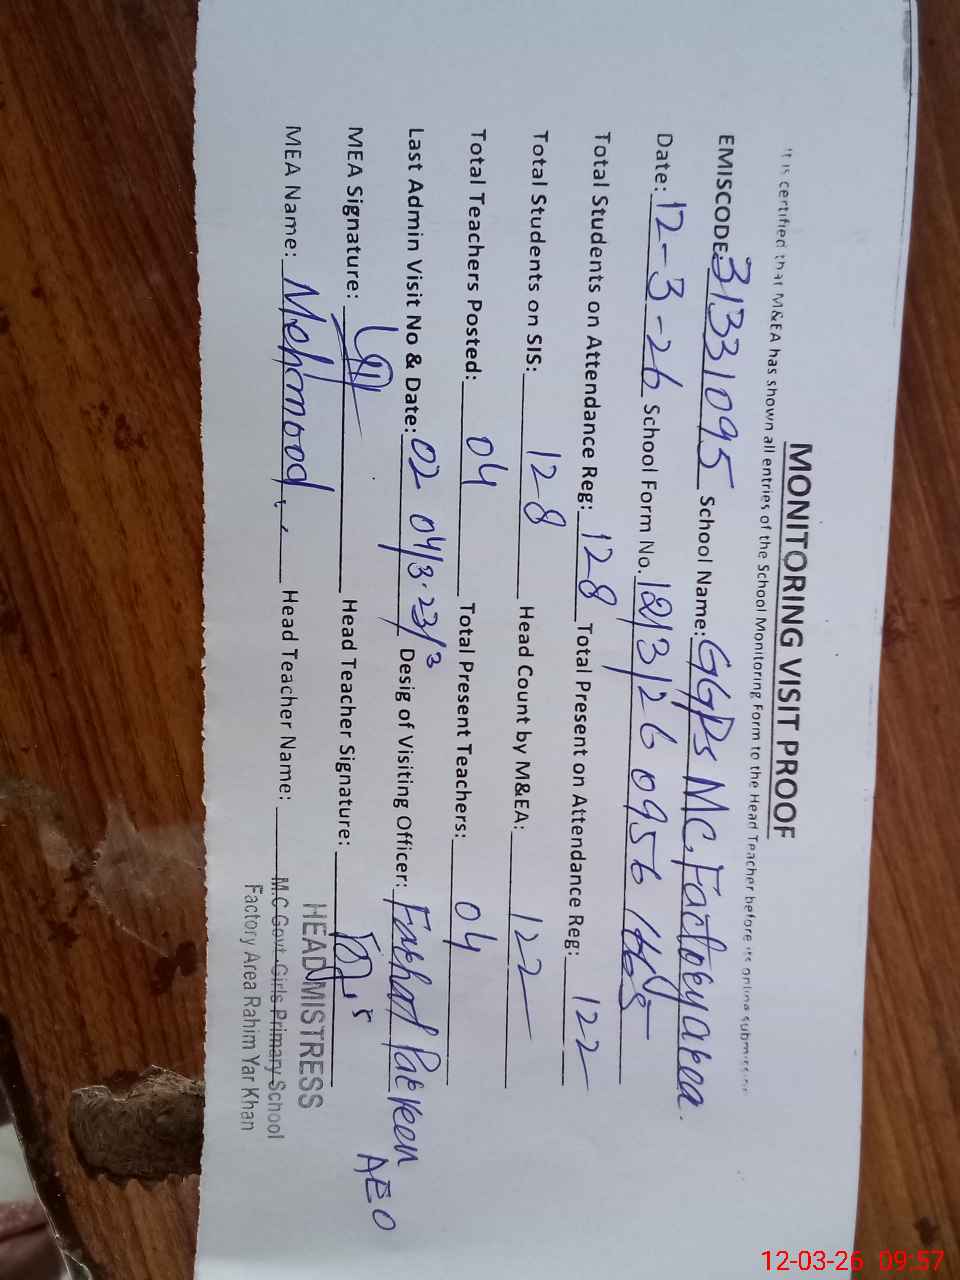 MONITORING VISIT PROOF
It is certified that M&EA has shown all entries of the School Monitoring Form to the Head Teacher before its online submission
EMISCODE: 31331095 School Name: GGPS MC. Factoryarea.
Date: 12-3-26 School Form No. 12/3/26 0956
Total Students on Attendance Reg: 128 Total Present on Attendance Reg: 122
Total Students on SIS: 128 Head Count by M&EA: 122
Total Teachers Posted: 04 Total Present Teachers: 04
Last Admin Visit No & Date: 02 04/3.23/3 Desig of Visiting Officer: Farhat Parveen AEO
MEA Signature: Head Teacher Signature:
MEA Name: Mehmood Head Teacher Name:
HEADMISTRESS
M.C Govt. Girls Primary School
Factory Area Rahim Yar Khan
12-03-26 09:57